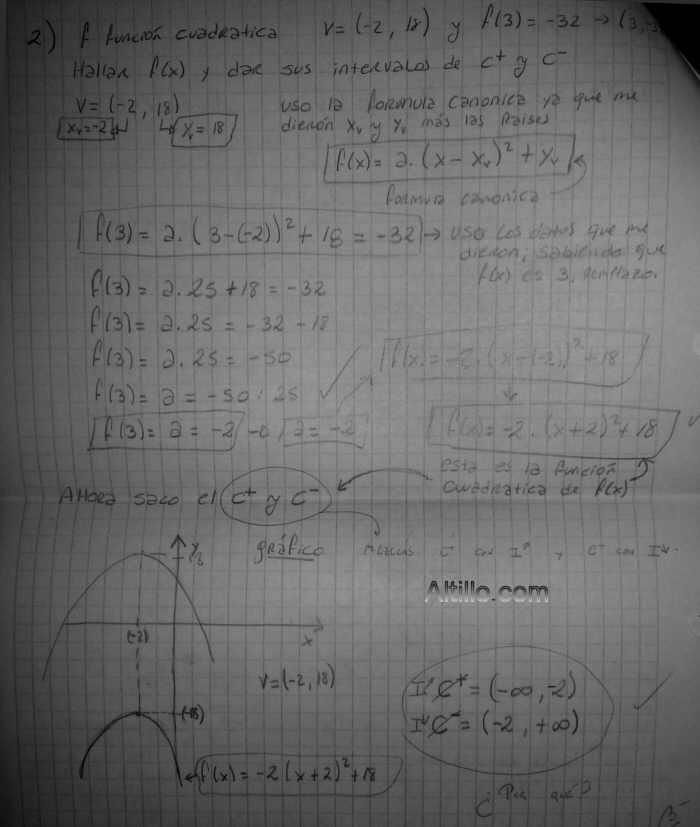 2) f función cuadratica v = (-2, 18) y f(3) = -32 → (3,-3
Hallar f(x) y dar sus intervalos de C⁺ y C⁻
V = (-2, 18)
Xv = -2 Yv = 18
uso la formula canonica ya que me
dieron Xv y Yv más las Raises
f(x) = a. (x - Xv)² + Yv
formula canonica
f(3) = a. (3-(-2))² + 18 = -32 → uso los datos que me
dieron, sabiendo que
f(x) es 3,
f(3) = a. 25 + 18 = -32
f(3) = a. 25 = -32 - 18
f(3) = a. 25 = -50
f(x) = -2. (x-(-2))² + 18
f(3) = a = -50 : 25
f(3) = a = -2 → a = -2
f(x) = -2. (x+2)² + 18
esta es la función
cuadratica de f(x)
Ahora saco el C⁺ y C⁻
gráfico
y
Altillo.com
(-2)
x
V = (-2, 18)
I C⁺ = (-∞, -2)
I C⁻ = (-2, +∞)
(-18)
f(x) = -2 (x+2)² + 18
¿Por qué?